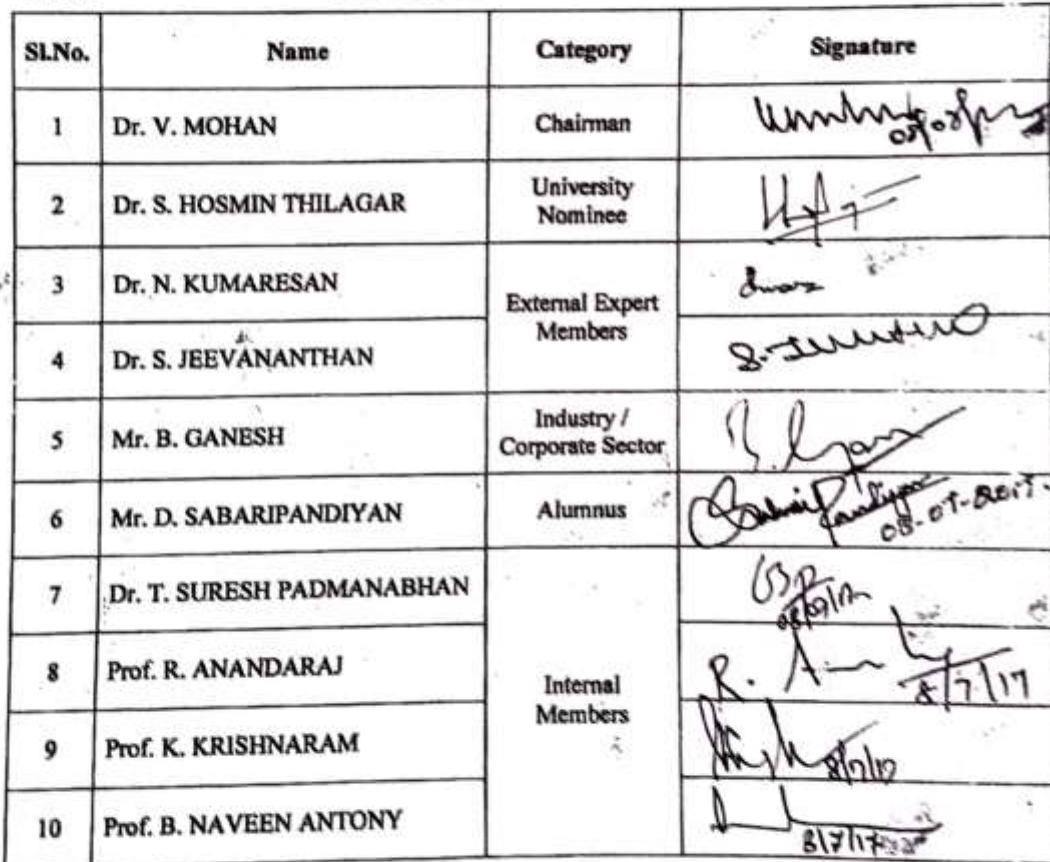 Sl.No. Name Category Signature
1 Dr. V. MOHAN Chairman
2 Dr. S. HOSMIN THILAGAR University
Nominee
3 Dr. N. KUMARESAN External Expert
Members
4 Dr. S. JEEVANANTHAN
5 Mr. B. GANESH Industry /
Corporate Sector
6 Mr. D. SABARIPANDIYAN Alumnus
08-07-2017
7 Dr. T. SURESH PADMANABHAN Internal
Members
08/07/17
8 Prof. R. ANANDARAJ R.
8/7/17
9 Prof. K. KRISHNARAM
8/7/17
10 Prof. B. NAVEEN ANTONY
8/7/17